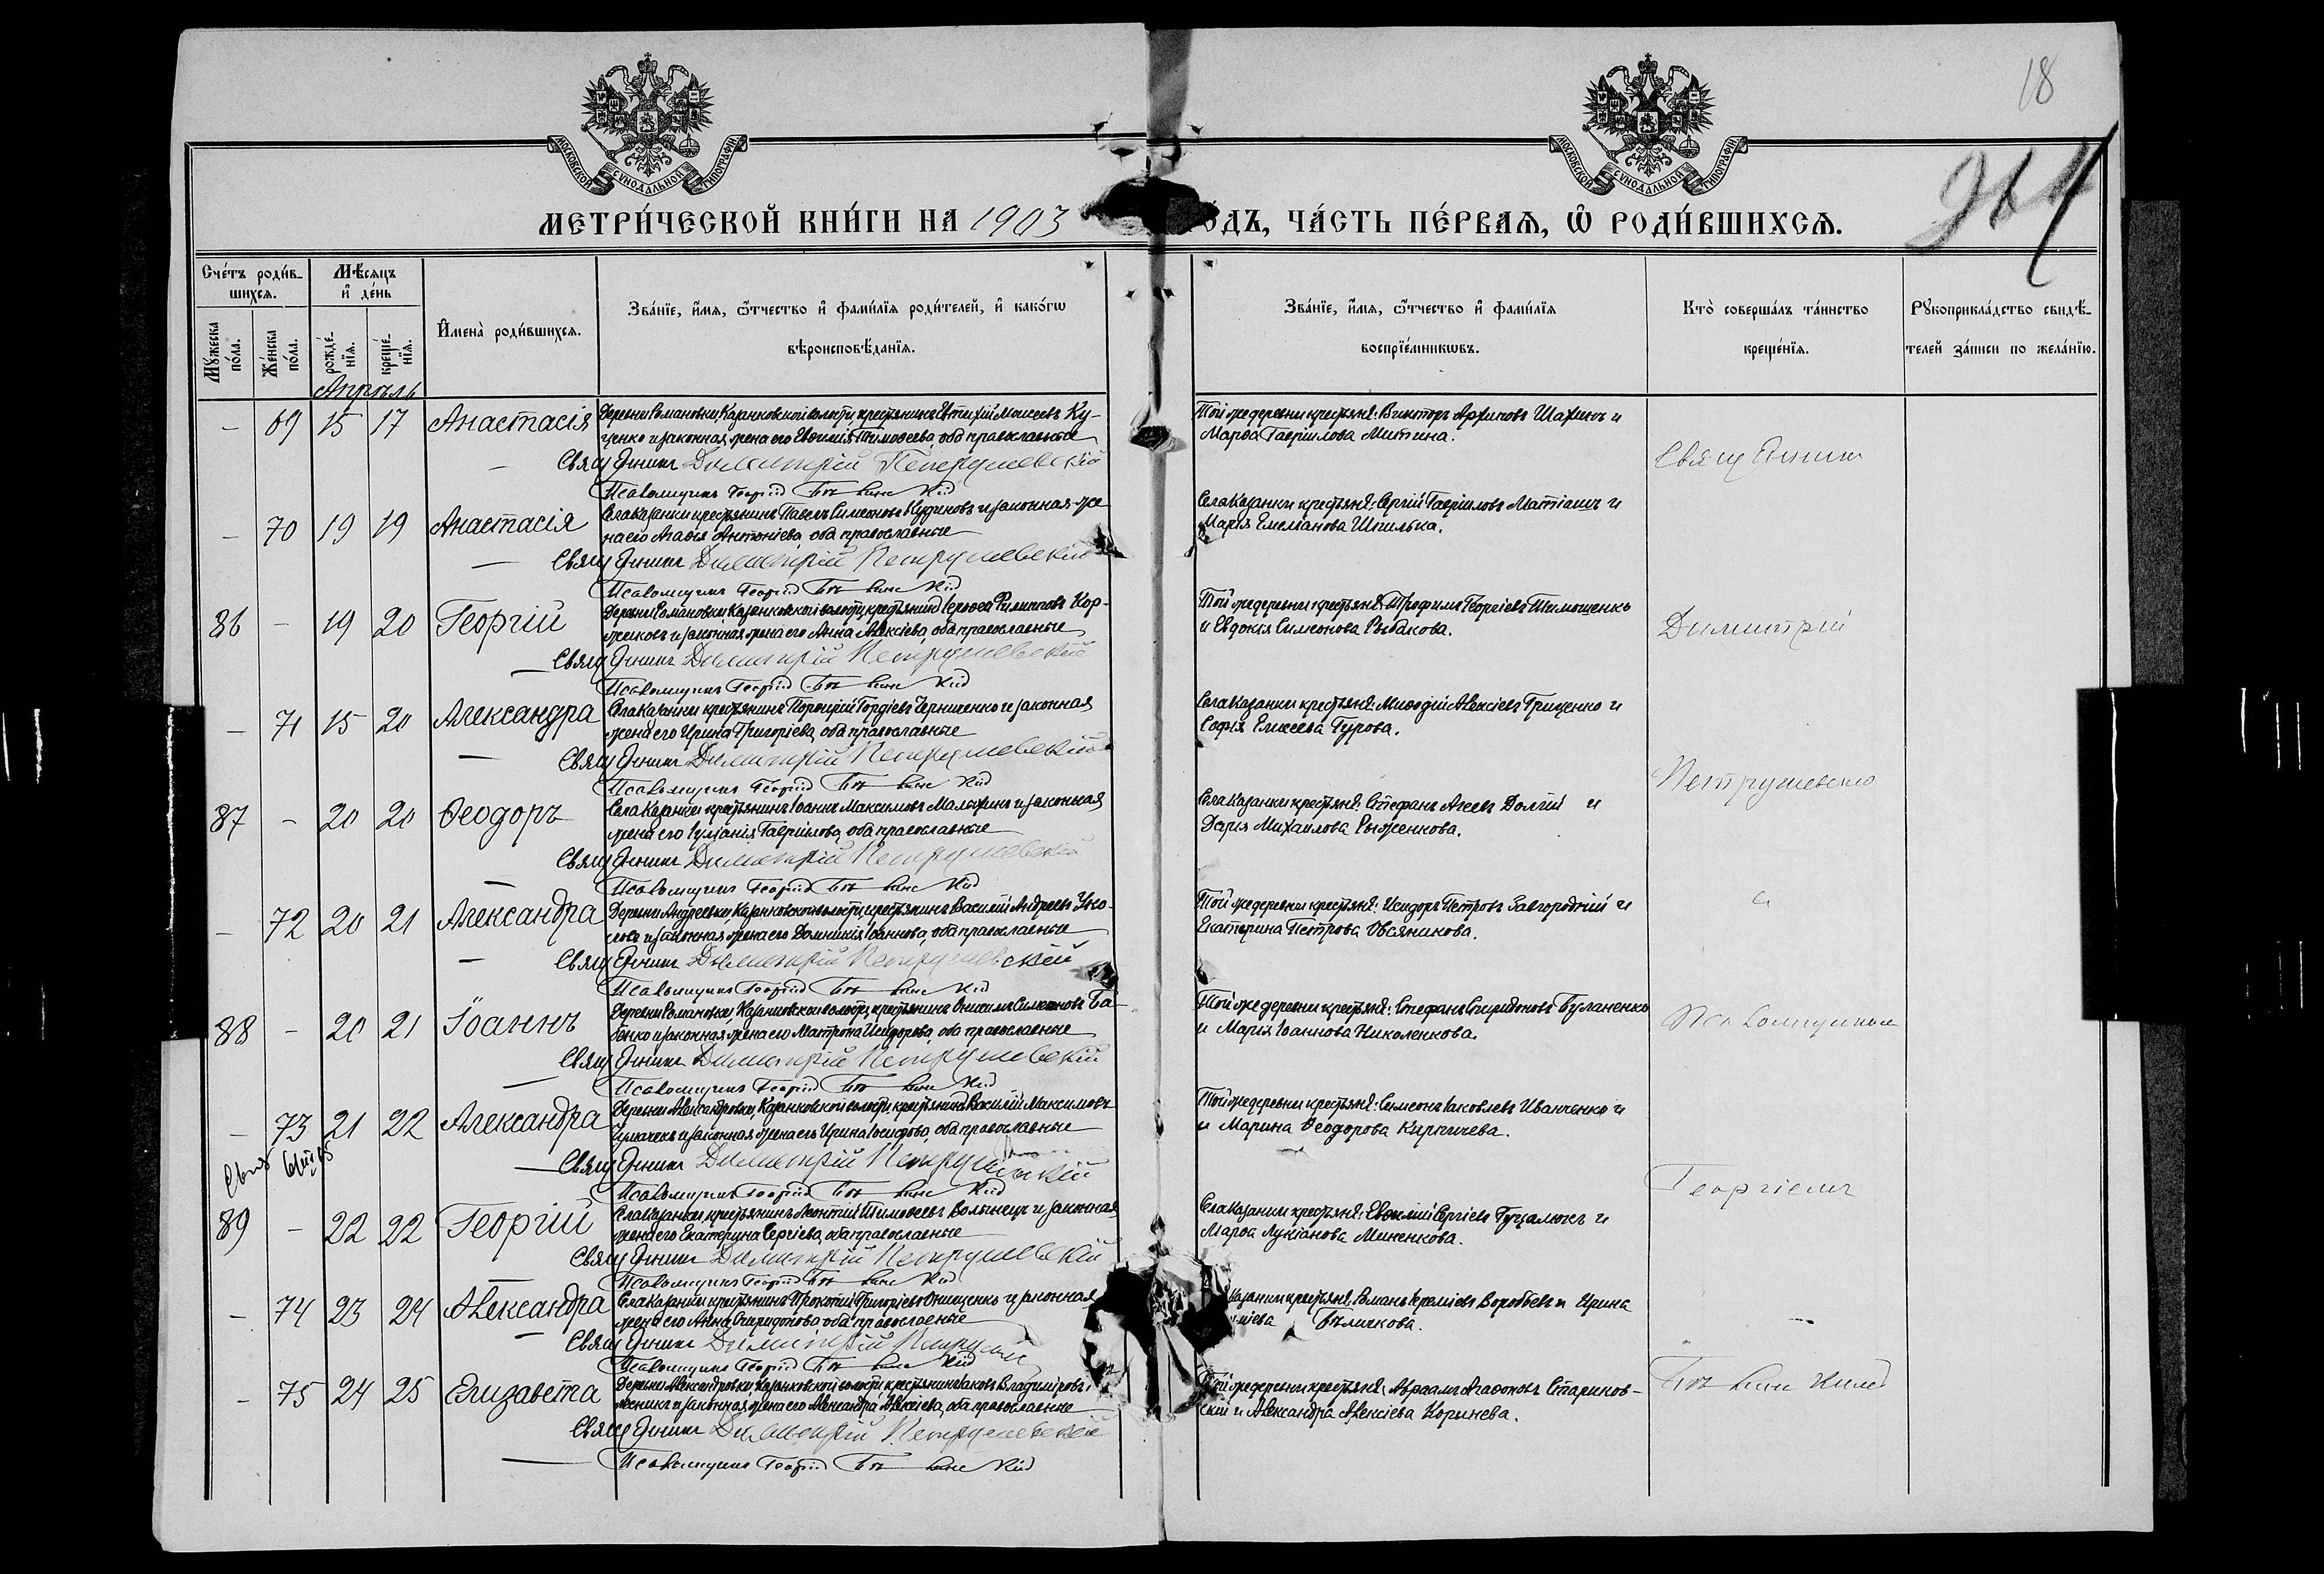 18
964
МОСКОВСКОЙ СУНОДАЛЬНОЙ ТИПОГРАФІИ
МОСКОВСКОЙ СУНОДАЛЬНОЙ ТИПОГРАФІИ
МЕТРИ́ЧЕСКОЙ КНИ́ГИ НА 1903
ГО́ДЪ, ЧА́СТЬ ПЕ́РВАѦ, Ѡ РОДИ́ВШИХСѦ.
Сче́тъ роди́вшихсѧ.
Мѣ́сѧцъ и де́нь
Мꙋ́жеска по́ла.
Же́нска по́ла.
рожде́нїѧ.
креще́нїѧ.
И҆мена̀ роди́вшихсѧ.
Зва́нїе, и҆́мѧ, ѻ҆́тчество и҆ фами́лїѧ роди́телей, и҆ како́гѡ
вѣроисповѣ́данїѧ.
Зва́нїе, и҆́мѧ, ѻ҆́тчество и҆ фами́лїѧ
воспрїе́мникѡвъ.
Кто̀ соверша́лъ та́инство
креще́нїѧ.
Рꙋкоприкла́дство свидѣ́телей за́писи по жела́нїю.
Апрѣль
– 69 15 17 Анастасія Деревни Романовки, Казанковской волости, крестьянинъ Евтихій Моисеевъ Ку-
ценко и законная жена его Евфимія Тимофеева, оба православные
Той же деревни крестьяне: Викторъ Архиповъ Шахинъ и
Марѳа Гавріилова Митина.
Священникъ Димитрій Петрушевскій
Псаломщикъ Георгій
– 70 19 19 Анастасія Села Казанки крестьянинъ Павелъ Симеоновъ Кудиновъ и законная же-
на его Агафія Антоніева, оба православные
Села Казанки крестьяне: Сергій Гавріиловъ Матіашъ и
Марія Емеліанова Шпилька.
Священникъ Димитрій Петрушевскій
Псаломщикъ Георгій
86 – 19 20 Георгій Деревни Романовки, Казанковской волости, крестьянинъ Іероѳей Филипповъ Кор-
жиковъ и законная жена его Анна Алексіева, оба православные
Той же деревни крестьяне: Трофимъ Георгіевъ Тимошенко
и Евдокія Симеонова Рыбакова.
Священникъ Димитрій Петрушевскій
Псаломщикъ Георгій
– 71 15 20 Александра Села Казанки крестьянинъ Порфирій Гордіевъ Черниченко и законная
жена его Ирина Григоріева, оба православные
Села Казанки крестьяне: Миѳодій Алексіевъ Гриценко и
Софія Елисеева Гурова.
Священникъ Димитрій Петрушевскій
Псаломщикъ Георгій
87 – 20 20 Ѳеодоръ Села Казанки крестьянинъ Іоаннъ Максимовъ Малахинъ и законная
жена его Іуліанія Гавріилова, оба православные
Села Казанки крестьяне: Стефанъ Агеевъ Долгій и
Дарія Михаилова Рыженкова.
Священникъ Димитрій Петрушевскій
Псаломщикъ Георгій
– 72 20 21 Александра Деревни Андреевки, Казанковской волости, крестьянинъ Василій Андреевъ
и законная жена его Домникія Іоаннова, оба православные
Той же деревни крестьяне: Исидоръ Петровъ Завгородній и
Екатерина Петрова Овсяникова.
Священникъ Димитрій Петрушевскій
Псаломщикъ Георгій
88 – 20 21 Іоаннъ Деревни Романовки, Казанковской волости, крестьянинъ Онисимъ Симеоновъ Ба-
бенко и законная жена его Матрона Исидорова, оба православные
Той же деревни крестьяне: Стефанъ Спиридоновъ Буланенко
и Марія Іоаннова Николенкова.
Священникъ Димитрій Петрушевскій
Псаломщикъ Георгій
– 73 21 22 Александра Деревни Александровки, Казанковской волости, крестьянинъ Василій Максимовъ
и законная жена его Ирина Іосифова, оба православные
Той же деревни крестьяне: Симеонъ Іаковлевъ Иванченко и
и Марина Ѳеодорова Кирпичева.
Священникъ Димитрій Петрушевскій
Псаломщикъ Георгій
89 – 22 22 Георгій Села Казанки крестьянинъ Леонтій Тимофеевъ Волынецъ и законная
жена его Екатерина Сергіева, оба православные
Села Казанки крестьяне: Евфимій Сергіевъ Гуцалюкъ и
Марѳа Лукіанова Миненкова.
Священникъ Димитрій Петрушевскій
Псаломщикъ Георгій
– 74 23 24 Александра Села Казанки крестьянинъ Прокопій Григоріевъ Онищенко и законная
жена его Анна Спиридонова, оба православные
Казанки крестьяне: Романъ Іереміевъ Воробьевъ и Ирина
Бѣличкова.
Священникъ Димитрій
Псаломщикъ Георгій
– 75 24 25 Елизавета Деревни Александровки, Казанковской волости, крестьянинъ Іаковъ Владиміровъ
и законная жена его Александра Алексіева, оба православные
Той же деревни крестьяне: Авраамъ Агафоновъ Стариков-
скій и Александра Алексіева Коринева.
Священникъ Димитрій Петрушевскій
Псаломщикъ Георгій
Священникъ
Димитрій
Петрушевскій
и
Псаломщикъ
Георгіемъ